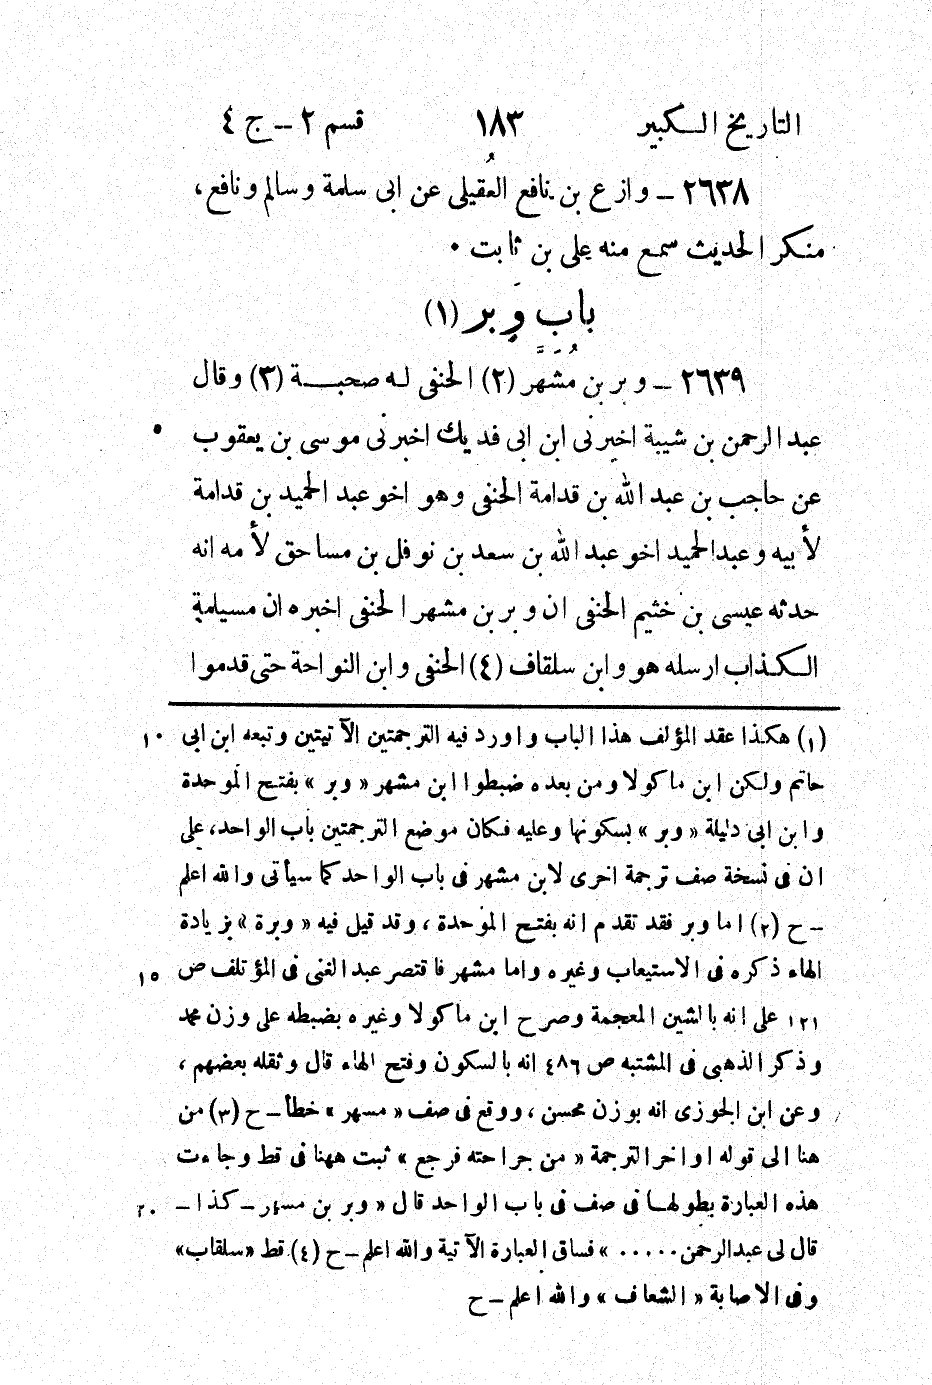 التاريخ الكبير ١٨٣ قسم ٢ – ج ٤
٢٦٣٨ – وازع بن نافع العُقيلى عن ابى سلمة وسالم ونافع،
منكر الحديث سمع منه على بن ثابت ٠
باب وبر (١)
٢٦٣٩ – وبر بن مشهر (٢) الحنفى له صحبة (٣) وقال
عبد الرحمن بن شيبة اخبرنى ابن ابى فديك اخبرنى موسى بن يعقوب ٥
عن حاجب بن عبد الله بن قدامة الحنفى وهو اخو عبد الحميد بن قدامة
لأبيه وعبد الحميد اخو عبد الله بن سعد بن نوفل بن مساحق لأمه انه
حدثه عيسى بن خثيم الحنفى ان وبر بن مشهر الحنفى اخبره ان مسيلمة
الكذاب ارسله هو وابن سلقاف (٤) الحنفى وابن النواحة حتى قدموا
(١) هكذا عقد المؤلف هذا الباب واورد فيه الترجمتين الآتيتين وتبعه ابن ابى ١٠
حاتم ولكن ابن ماكولا ومن بعده ضبطوا ابن مشهر « وبر » بفتح الموحدة
وابن ابى دليلة « وبر » بسكونها وعليه فكان موضع الترجمتين باب الواحد، على
ان فى نسخة صف ترجمة اخرى لابن مشهر فى باب الواحد كما سيأتى والله اعلم
– ح (٢) اما وبر فقد تقدم انه بفتح الموحدة ، وقد قيل فيه « وبرة » بزيادة
الهاء ذكره فى الاستيعاب وغيره واما مشهر فاقتصر عبد الغنى فى المؤتلف ص ١٥
١٢١ على انه بالشين المعجمة وصرح ابن ماكولا وغيره بضبطه على وزن محمد
وذكر الذهبى فى المشتبه ص ٤٨٦ انه بالسكون وفتح الهاء قال وثقله بعضهم ،
وعن ابن الجوزى انه بوزن محسن ، ووقع فى صف « مسهر » خطأ – ح (٣) من
هنا الى قوله اواخر الترجمة « من جراحته فرجع » ثبت ههنا فى قط وجاءت
هذه العبارة بطولها فى صف فى باب الواحد قال « وبر بن مسهر – كذا – ٢٠
قال لى عبد الرحمن ..... » فساق العبارة الآتية والله اعلم – ح (٤) قط «سلقاب»
وفى الاصابة « الشعاف » والله اعلم – ح